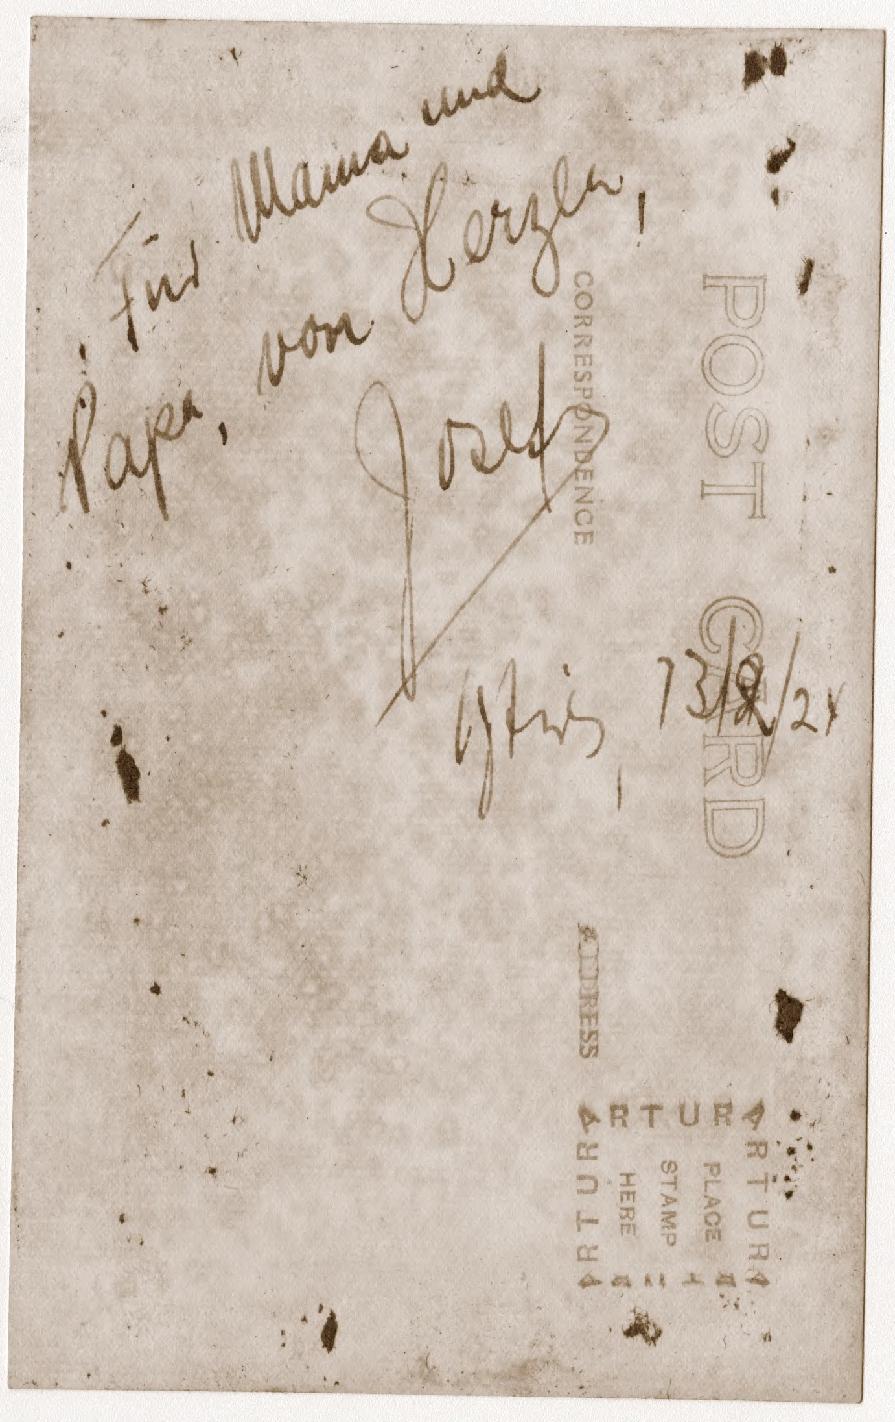 Für Mama und
Papa, von Herzen,
Josef
13/2/24
POST CARD
CORRESPONDENCE
ADDRESS
ARTURA
PLACE
STAMP
HERE
ARTURA
ARTURA